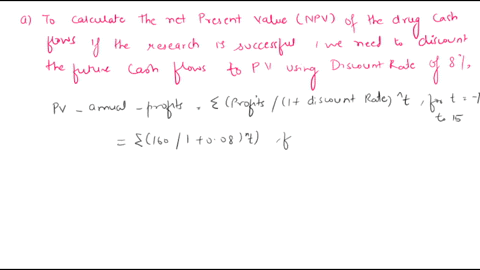 a) To calculate the net Present value (NPV) of the drug cash
flows if the research is successful, we need to discount
the future cash flows to PV using Discount Rate of 8%.
PV - annual - profits = Σ (Profits / (1 + discount Rate) ^t , for t = -1
to 15
= Σ(160 / 1 + 0.08) ^t) , f